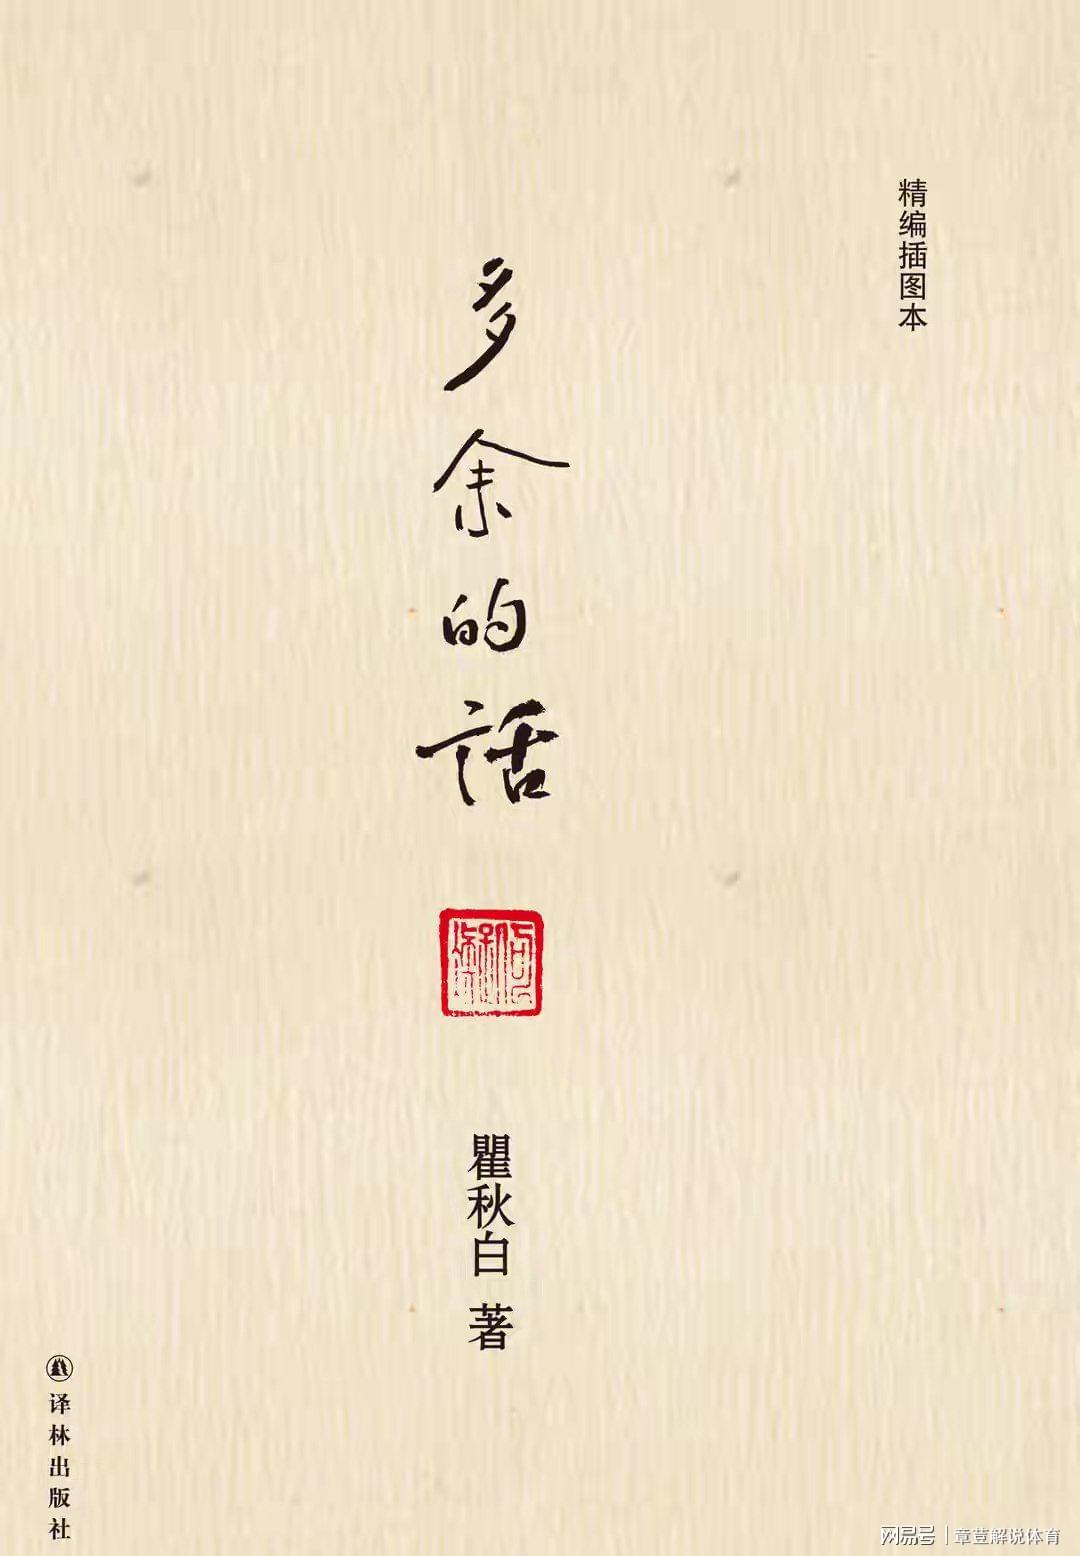 精编插图本
多余的話
瞿秋白 著
译林出版社
网易号 | 章荁解说体育